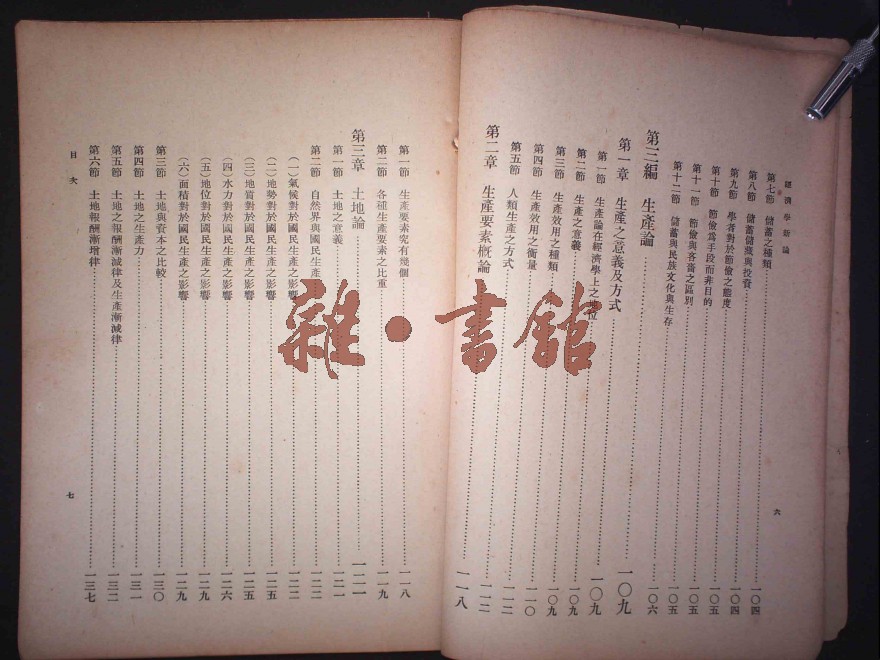 經濟學新論
第七節 儲蓄之種類……一〇四
第八節 儲蓄儲藏與投資……一〇四
第九節 學者對於節儉之態度……一〇五
第十節 節儉爲手段而非目的……一〇五
第十一節 節儉與吝嗇之區別……一〇五
第十二節 儲蓄與民族文化與生存……一〇六
第三編 生產論……一〇九
第一章 生產之意義及方式……一〇九
第一節 生產論在經濟學上之地位……一〇九
第二節 生產之意義……一〇九
第三節 生產效用之種類……一一〇
第四節 生產效用之衡量……一一二
第五節 人類生產之方式……一一二
第二章 生產要素槪論……一一八
六
第一節 生產要素究有幾個……一一八
第二節 各種生產要素之比重……一一九
第三章 土地論……一二一
第一節 土地之意義……一二一
第二節 自然界與國民生產……一二二
(一)氣候對於國民生產之影響……一二二
(二)地勢對於國民生產之影響……一二五
(三)地質對於國民生產之影響……一二五
(四)水力對於國民生產之影響……一二六
(五)地位對於國民生產之影響……一二九
(六)面積對於國民生產之影響……一二九
第三節 土地與資本之比較……一三〇
第四節 土地之生產力……一三一
第五節 土地之報酬漸減律及生產漸減律……一三二
第六節 土地報酬漸增律……一三七
目次
七
雜·書館